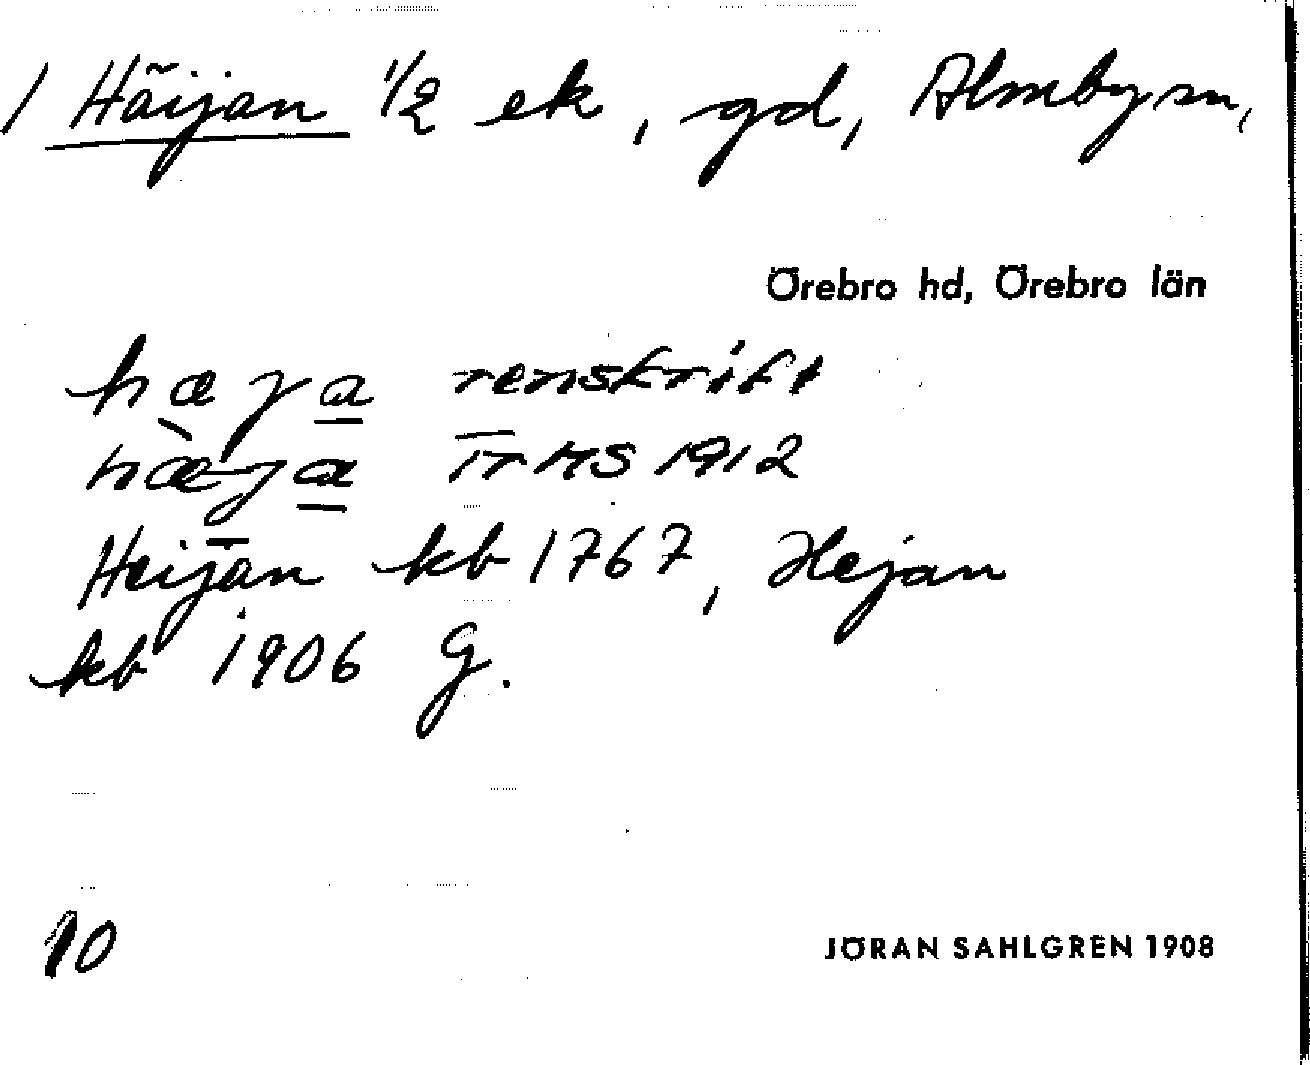 / Häijan 1/2 ek, gd, Almby sn,
Örebro hd, Örebro län
hæja renskrift
hæja TrHS 1912
Heijan kb 1767, Hejan
kb 1906 G.
10
JÖRAN SAHLGREN 1908